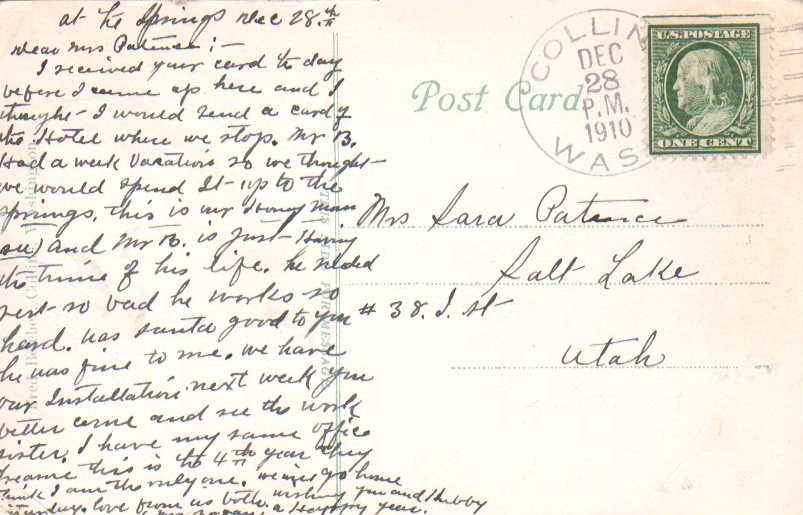 at the Springs Dec 28.th
Dear Mrs Patence; —
I received your card the day
before I came up here and I
thought I would send a card of
the Hotel where we stop. Mr B.
Had a week Vacation so we thought
we would spend It up to the
Springs, this is our Honey Moon
see) and Mr B. is just Having
the time of his life. he needed
rest so bad he works so
hard. was Santa good to you
he was fine to me. we have
our Installation next week you
better come and see the work
sister. I have my same office
Treasure this is the 4th year they
think I am the only one. we will go home
Sunday. love from us both. wishing you and Hubby
a Happy year.
Post Card
COLLIN
DEC
28
P.M.
1910
WAS
U.S. POSTAGE
ONE CENT
Mrs Sara Patence
Salt Lake
# 38. I. St
Utah